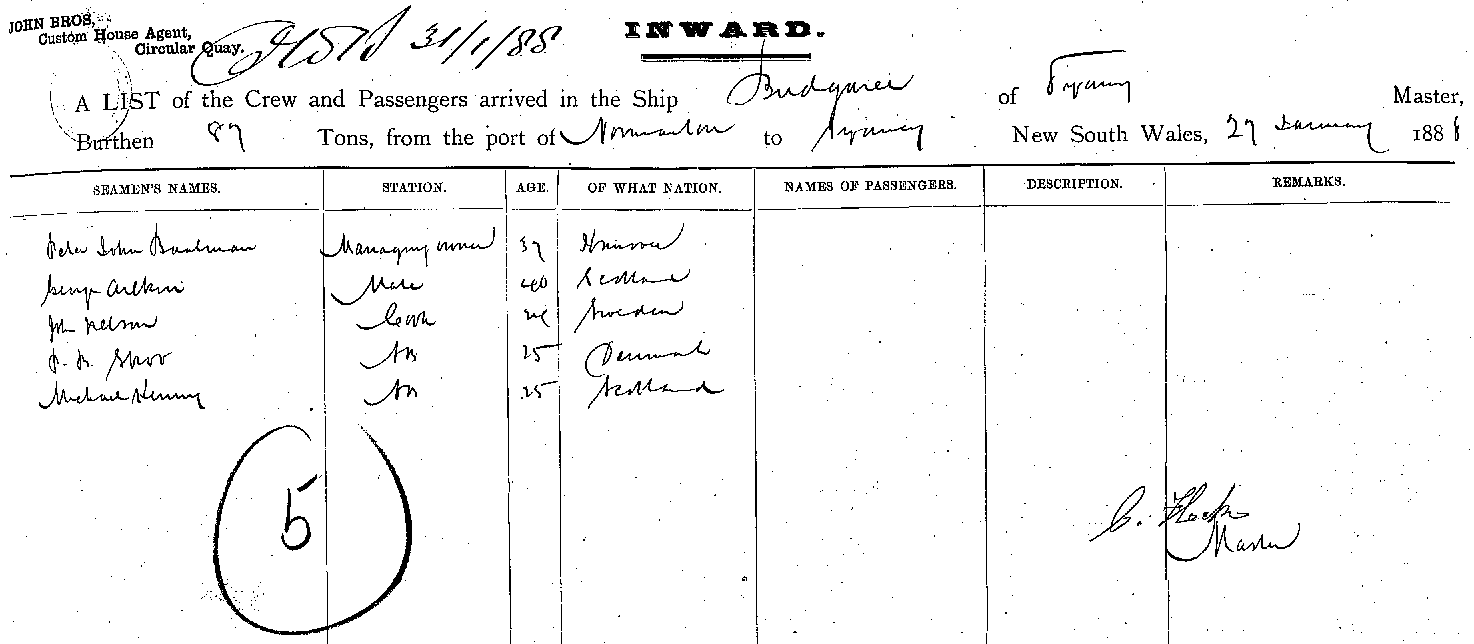 JOHN BROS,
Custom House Agent,
Circular Quay.
31/1/88
INWARD.
A LIST of the Crew and Passengers arrived in the Ship Budgaree of Sydney Master,
Burthen 87 Tons, from the port of Normanton to Sydney New South Wales, 27 January 1888
SEAMEN'S NAMES. STATION. AGE. OF WHAT NATION. NAMES OF PASSENGERS. DESCRIPTION. REMARKS.
Peter John Managing owner 37 Hanover
George Aitken Mate 40 Scotland
John Nelson Cook Sweden
AB 25 Denmark
Michael Kenny AB 25 Scotland
5
C.
Master